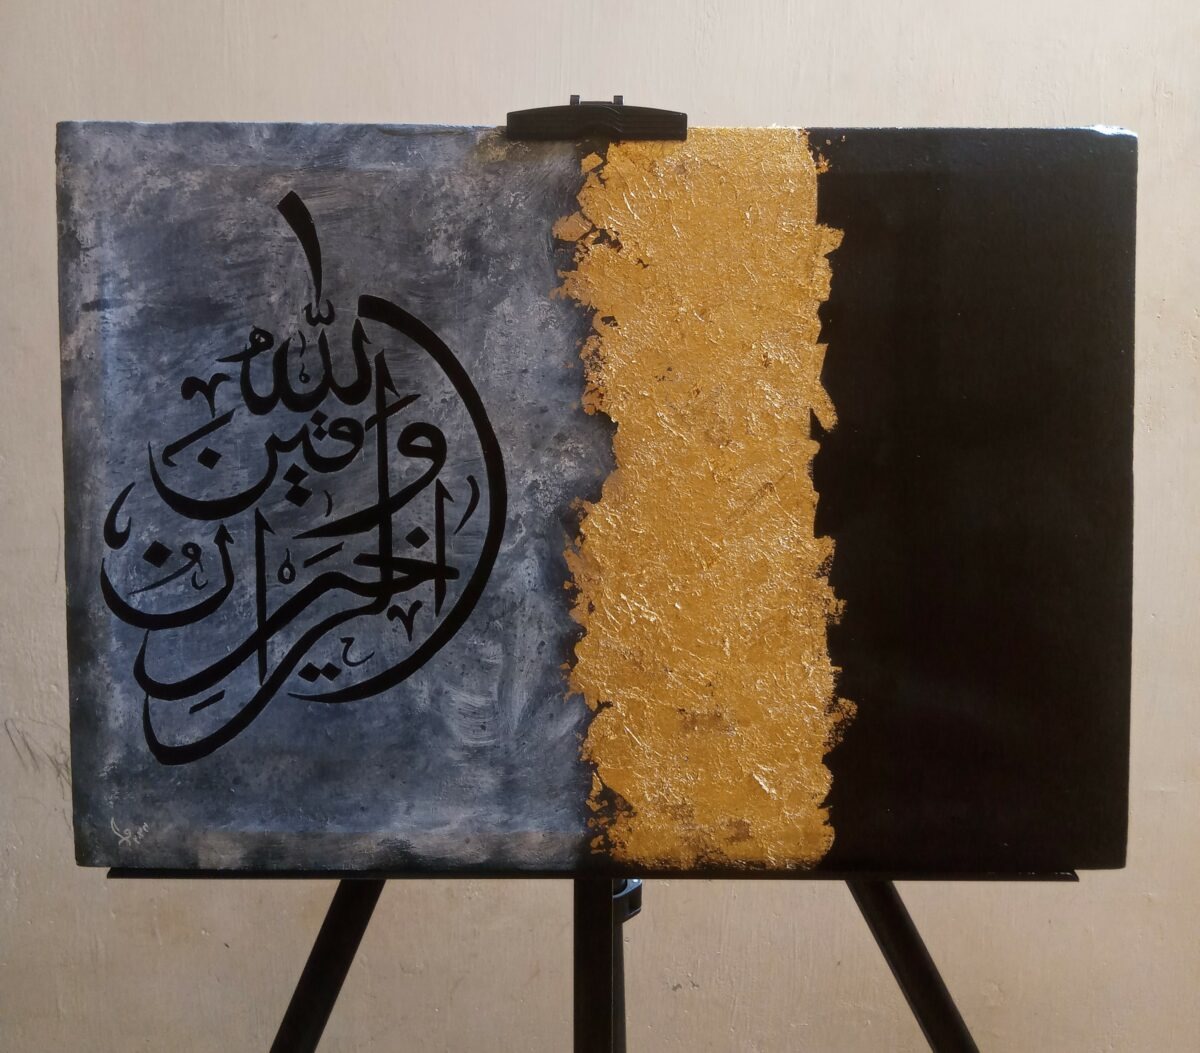 والله خير الرازقين